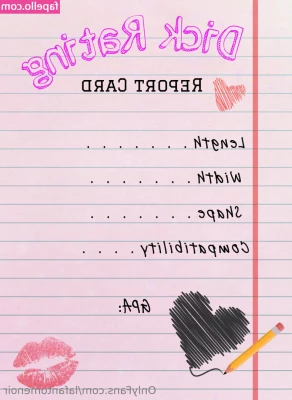 fapello.com
Dick Rating
REPORT CARD
Length . . . . . . .
Width . . . . . . .
Shape . . . . . . .
Compatibility . . . .
GPA:
OnlyFans.com/lafantomenoir